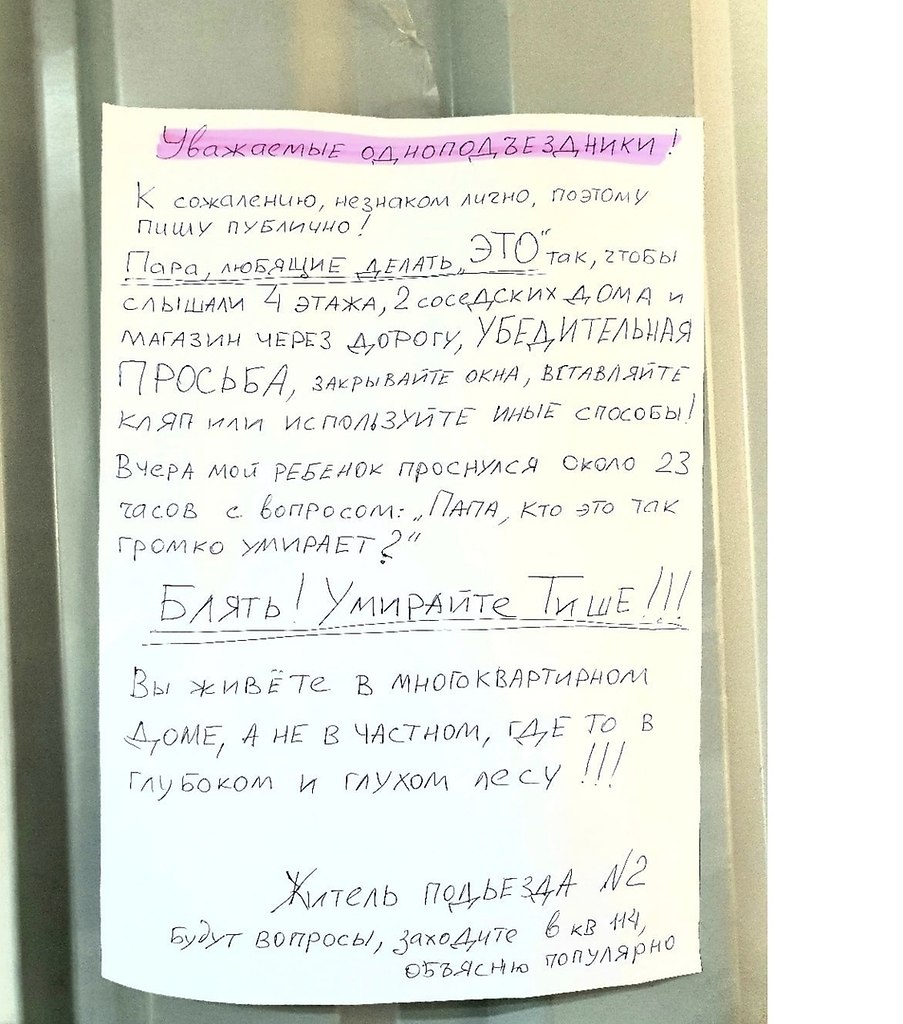 Уважаемые одноподъездники!
К сожалению, незнаком лично, поэтому
пишу публично!
Пара, любящие делать „ЭТО“ так, чтобы
слышали 4 этажа, 2 соседских дома и
магазин через дорогу, УБЕДИТЕЛЬНАЯ
ПРОСЬБА, закрывайте окна, вставляйте
кляп или используйте иные способы!
Вчера мой ребенок проснулся около 23
часов с вопросом: „Папа, кто это так
громко умирает?“
Блять! Умирайте Тише!!!
Вы живёте в многоквартирном
доме, а не в частном, где то в
глубоком и глухом лесу!!!
Житель подьезда N2
Будут вопросы, заходите в кв 114,
объясню популярно